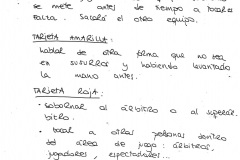 se mete antes de tiempo a tocar
falta. Sacará el otro equipo.
TARJETA AMARILLA:
hablar de otra forma que no sea
en susurros y habiendo levantado
la mano antes.
TARJETA ROJA:
- sobornar al árbitro o al superár-
bitro.
- tocar a otras personas dentro
del área de juego: árbitros,
jugadores, espectadores...